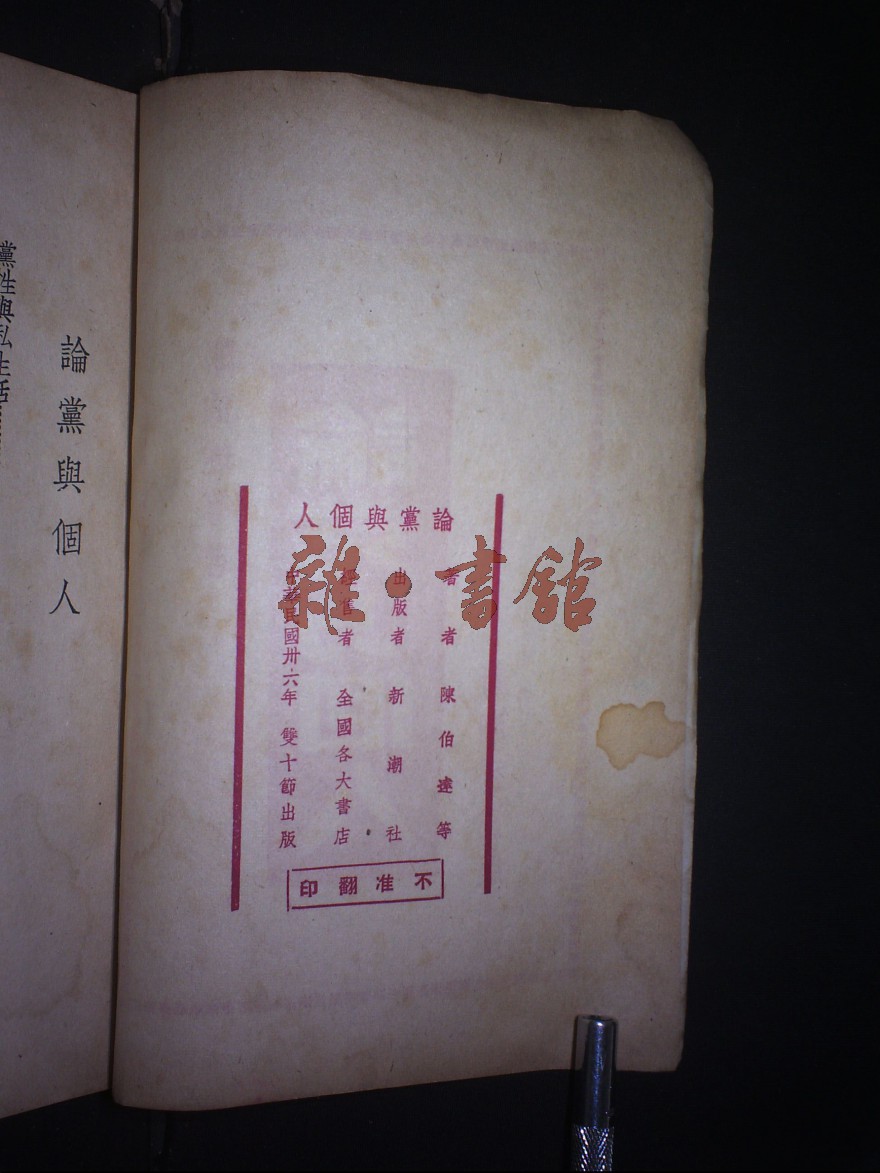 論黨與個人
著者 陳伯達等
出版者 新潮社
經售者 全國各大書店
中華民國卅六年 雙十節出版
不准翻印
論黨與個人
黨性與私生活
雜·書館